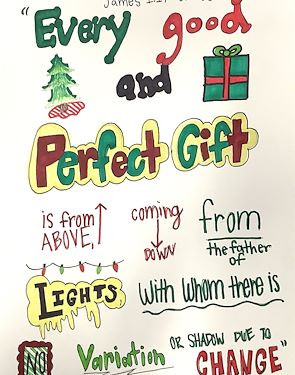 James
"Every good
and
Perfect Gift
is from ABOVE, coming DOWN from the father of
LIGHTS with whom there is
NO Variation OR SHADOW DUE TO CHANGE"